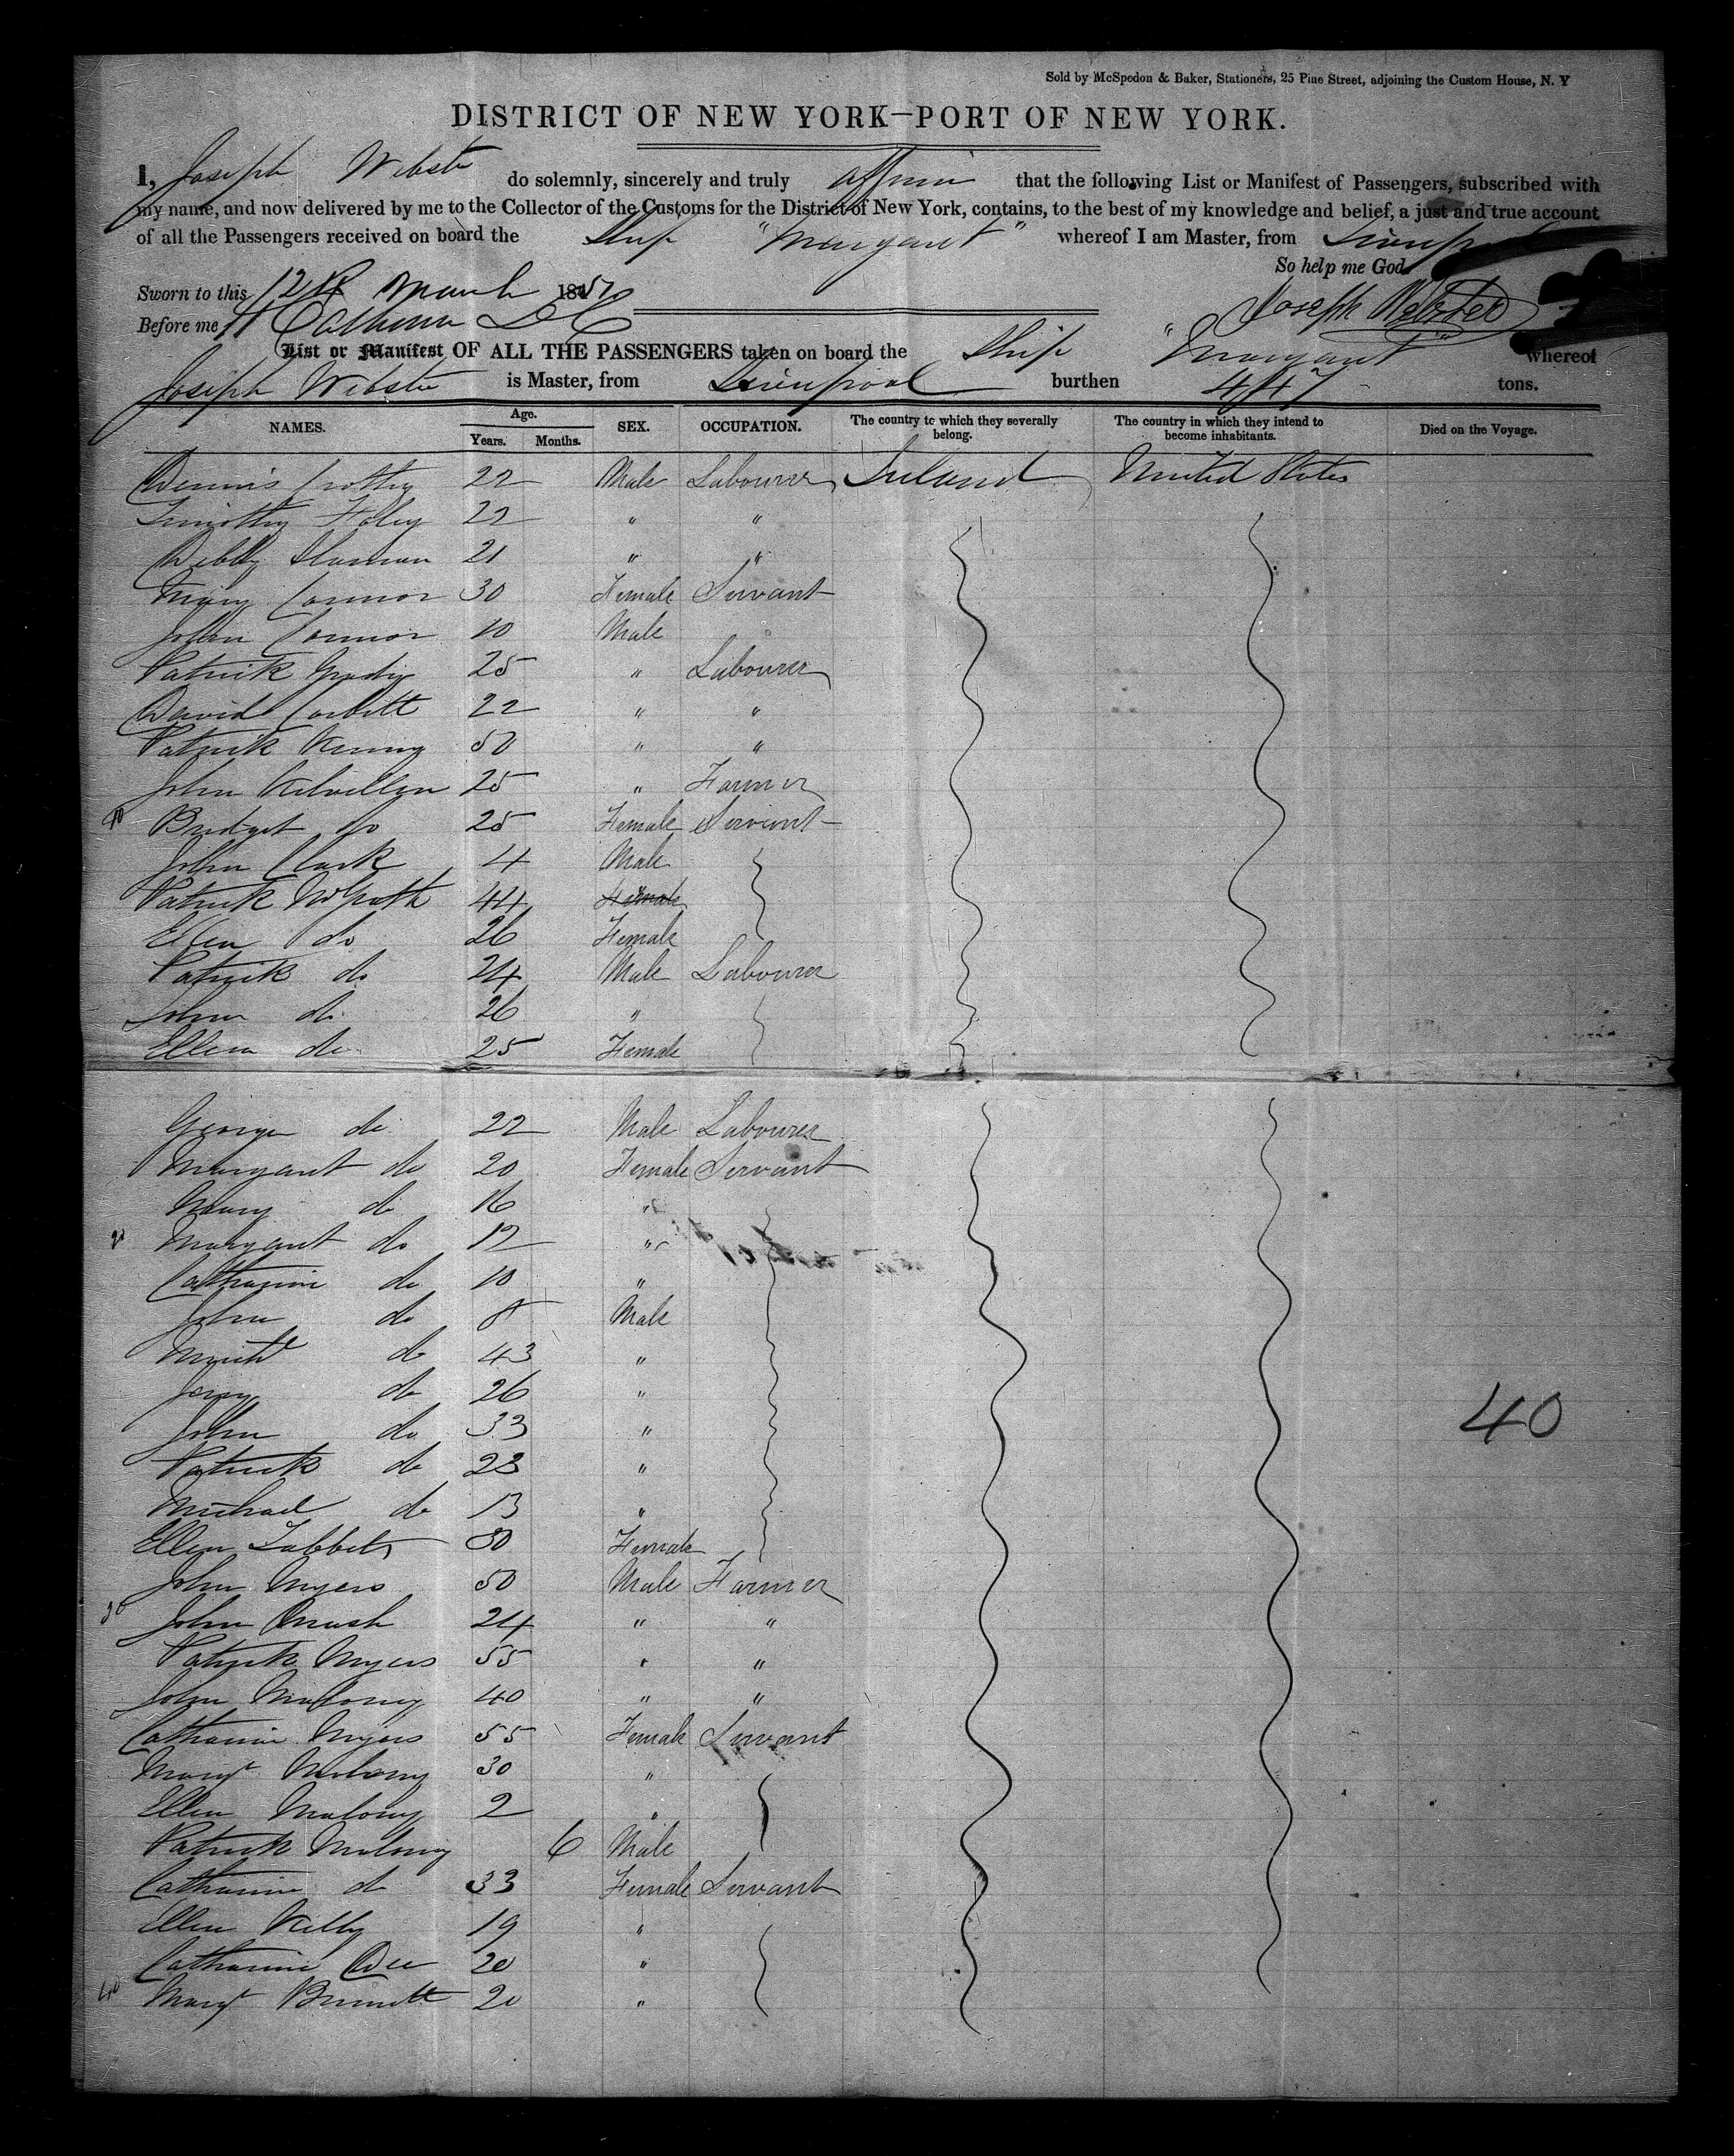 Sold by McSpedon & Baker, Stationers, 25 Pine Street, adjoining the Custom House, N. Y
DISTRICT OF NEW YORK—PORT OF NEW YORK.
I, Joseph Webster do solemnly, sincerely and truly affirm that the following List or Manifest of Passengers, subscribed with
my name, and now delivered by me to the Collector of the Customs for the District of New York, contains, to the best of my knowledge and belief, a just and true account
of all the Passengers received on board the Ship "Margaret" whereof I am Master, from Liverpool
So help me God.
Sworn to this 12th March 1850
Before me Calhoun DC Joseph Webster
List or Manifest OF ALL THE PASSENGERS taken on board the Ship "Margaret" whereof
Joseph Webster is Master, from Liverpool burthen 447 tons.
NAMES. Age. Years. Months. SEX. OCCUPATION. The country to which they severally belong. The country in which they intend to become inhabitants. Died on the Voyage.
Dennis Crotty 22 Male Labourer Ireland United States
Timothy Foley 22 " "
21 " "
Mary Connor 30 Female Servant
John Connor 10 Male
Patrick Grady 25 " Labourer
David Corbitt 22 " "
Patrick Kenny 50 " "
John 25 " Farmer
10 Bridget do 25 Female Servant
John Clark 4 Male
Patrick McGrath 44 Female
Ellen do 26 Female
Patrick do 24 Male Labourer
John do 26 "
Ellen do 25 Female
George do 22 Male Labourer
Margaret do 20 Female Servant
Mary do 16 "
20 Margaret do 12 "
Catharine do 10 "
John do 8 Male
do 43 "
do 26 "
John do 33 "
Patrick do 23 "
Michael do 13 "
Ellen 30 Female
John Myers 50 Male Farmer
30 John 24 " "
Patrick Myers 55 " "
John Malony 40 " "
Catharine Myers 55 Female Servant
Margt Malony 30 "
Ellen Malony 2 "
Patrick Malony 6 Male
Catharine do 33 Female Servant
Ellen Kelly 19 "
Catharine Dee 20 "
40 Margt 20 "
40